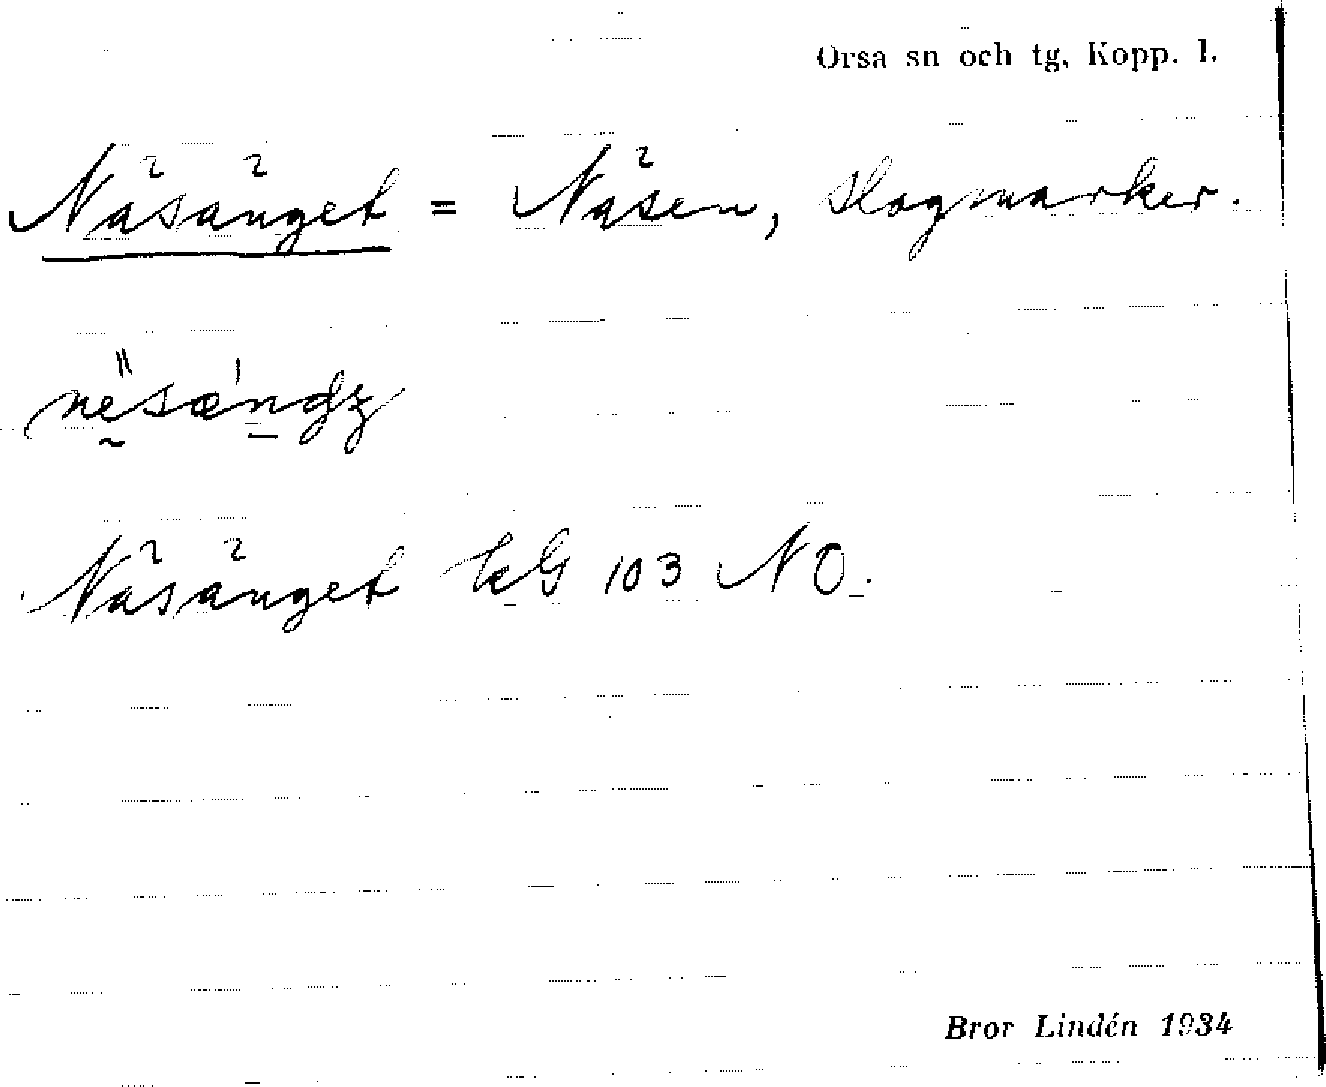 Orsa sn och tg, Kopp. l.
Näsänget = Näsen, slogmarker.
Näsänget kG 103 NO.
Bror Lindén 1934